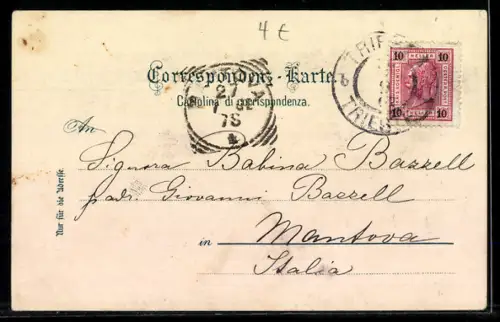 4 €
Correspondenz-Karte.
Cartolina di corrispondenza.
27
7S
TRIEST
TRIEST
10 10
10 10
An
Signora Babina Bazzell
padr. Giovanni Bazzell
in Mantova
Italia
Nur für die Adresse.